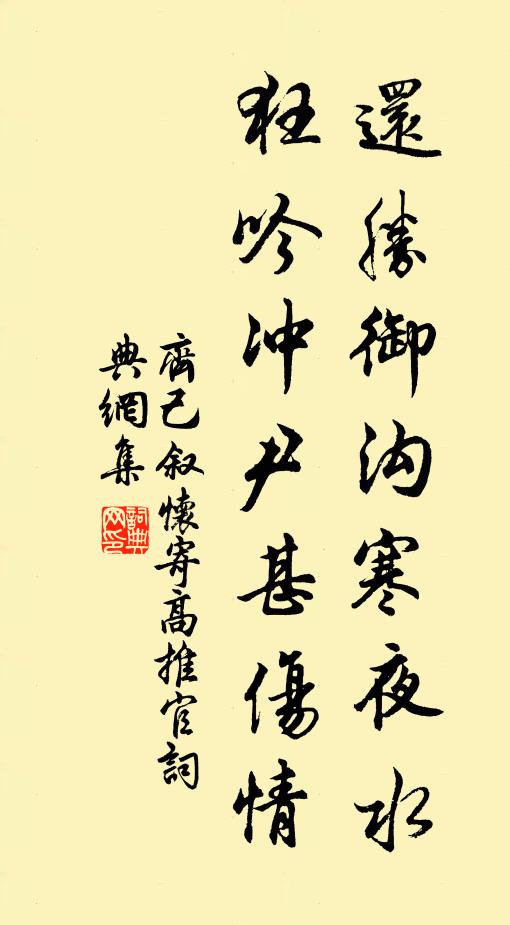 還勝御沟寒夜水
狂吟冲尹甚傷情
齊己叙懷寄高推官詞
典網集
詞典
网印